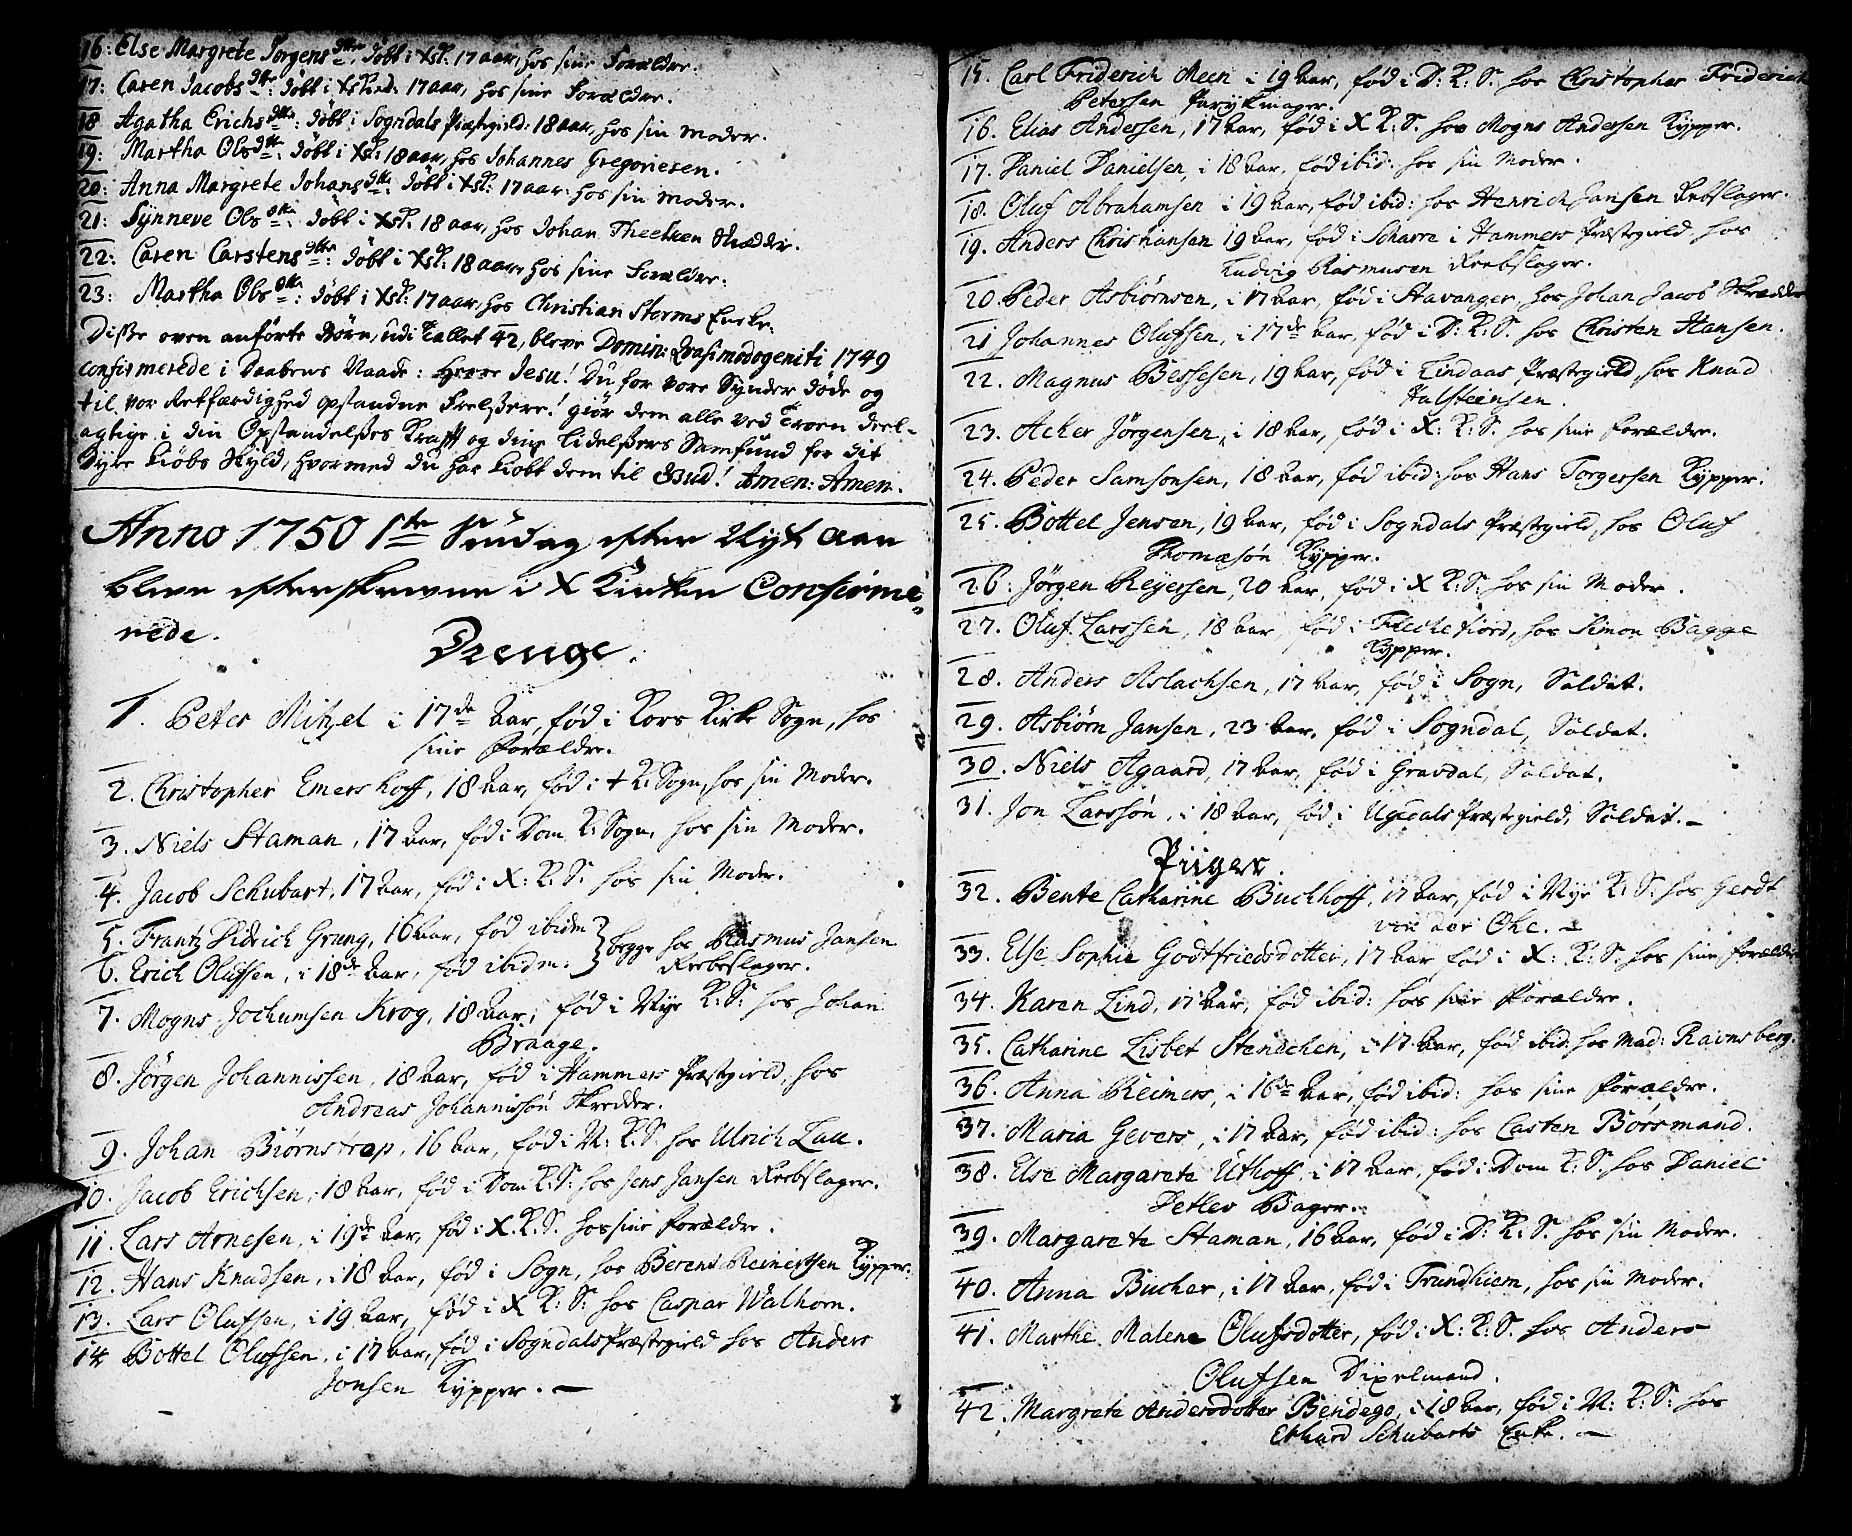 16: Else Margrete Jørgens dtr: døbt i XsK: 17 aar, hos sine Forældre.
17: Caren Jacobs dtr: døbt i XsK: 17 aar, hos sine Forældre.
18 Agatha Erichs dtr: døbt i Sogndals Præstegield: 18 aar, hos sin Moder.
19: Martha Ols dtr: døbt i XsK: 18 aar, hos Johannes Gregoriesen.
20: Anna Margrete Johans dtr: døbt i XsK: 17 aar: hos sin Moder.
21: Synneve Ols dtr: døbt i XsK: 18 aar, hos Johan
22: Caren Carstens dtr: døbt i XsK: 18 aar, hos sine Forældre:
23: Martha Ols dtr: døbt i XsK: 17 aar, hos Christian Storms Encke.
Disse oven anførte Børn, udi Tallet 42, bleve Domin: Qvasimodogeniti 1749
confirmerede i Daabens Naade: Herre Jesu! Du for vore Synder døde og
til vor Retfærdighed opstandne Frelsere! giør dem alle ved Troen deel-
agtige i din Opstandelses Krafft og dine Lidelsers Samfund for dit
dyre kiøbs skyld, hvormed du har kiøbt dem til Gud! Amen: Amen.
Anno 1750 1te Søndag efter Nyt aar
bleve efterskrevne i X Kirken Confirme-
rede.
Drenge.
1. Peter Mitzel i 17de Aar, fød i Kors Kirke Sogn, hos
sine Forældre.
2. Christopher Emershoff, 18 Aar, fød i + K: Sogn, hos sin Moder.
3. Niels Staman, 17 Aar, fød i Dom K: Sogn, hos sin Moder.
4. Jacob Schubart, 17 Aar, fød i X: K: S: hos sin Moder.
5. Frantz Didrich Grung, 16 Aar, fød ibidm } begge hos Rasmus Jansen
6. Erich Oluffsen, i 18de Aar, fød ibidm: } Reebslager.
7. Mogns Jochumsen Krog, 18 Aar, fød i Nye K: S: hos Johan
Braage.
8. Jørgen Johannissen, 18 Aar, fød i Hammers Præstegield, hos
Andreas Johannissøn Skredder.
9. Johan Biørnstrop, 16 Aar, fød i N: K: S: hos Ulrich Lau.
10. Jacob Erichsen, 18 Aar, fød i Dom K: S: hos Jens Jansen Reebslager.
11. Lars Arnesen, i 19de Aar, fød i X. K: S. hos sine Forældre.
12. Hans Knudsen, i 18 Aar, fød i Sogn, hos Berent Reinertsen Kypper.
13. Lars Olufsen, i 19 Aar, fød i X K: S: hos Caspar Walhorn.
14 Bottel Oluffsen, i 17 Aar, fød i Sogndals Præstegield hos Anders
Jonsen Kypper. —
15. Carl Friderich Meen i 19 Aar, fød i D: K: S: hos Christopher Friderich
Petersen Parykmager.
16. Elias Andersen, 17 Aar, fød i X K: S. hos Mogns Andersen Kypper.
17. Daniel Danielsen, i 18 Aar, fød ibid: hos sin Moder.
18. Oluf Abrahamsen i 19 Aar, fød ibid: hos Henrich Jansen Reebslager.
19. Anders Christiansen 19 Aar, fød i i Hammers Præstegield hos
Ludvig Rasmusen Reebslager.
20. Peder Asbiørnsen, i 17 Aar, fød i Stavanger, hos Johan Jacob Skrædder
21 Johannes Olufsen, i 17de Aar, fød i D: K: S. hos Christen Hansen.
22. Magnus Bessesen, 19 Aar, fød i Lindaas Præstegield hos Knud
Halsteensen.
23. Acher Jørgensen, i 18 Aar, fød i X: K: S. hos sine Forældre.
24. Peder Samsonsen, 18 Aar, fød ibid: hos Hans Torgersen Kypper.
25. Bottel Jensen, 19 Aar, fød i Sogndals Præstegield, hos Oluf
Thomæsøn Kypper.
26. Jørgen Reyersen, 20 Aar, fød i X K: S: hos sin Moder.
27. Oluf Larssen, 18 Aar, fød i Fleche fiord, hos Simon Bagge
Kypper.
28. Anders Aslachsen, 17 Aar, fød i Sogn, Soldat.
29. Asbiørn Jansen, 23 Aar, fød i Sogndal, Soldat.
30. Niels Agaard, 17 Aar, fød i Gravdal, Soldat.
31. Jon Larssøn, i 18 Aar, fød i Præstegield, Soldat. —
Piiger.
32. Bente Catharine Buchhoff, 17 Aar, fød i Nye K: S: hos Gerdt
von der Ohe. —
33. Else Sophie Godtfriedsdotter, 17 Aar fød i X: K: S. hos sine Forældre
34. Karen Lind, 17 Aar, fød ibid: hos sine Forældre.
35. Catharine Lisbet Stendchen, i 17 Aar, fød ibid: hos Mad: Ravnsberg.
36. Anna Reimers, i 16de Aar, fød ibid: hos sine Forældre.
37. Maria Gevers, i 17 Aar, fød ibid: hos Casten Børsmand.
38. Else Margarete Uthoff, i 17 Aar, fød i Dom K: S. hos Daniel
Detlev Bager.
39. Margarete Staman, 16 Aar, fød i D: K: S. hos sin Moder.
40. Anna Bucher, i 17 Aar, fød i Trundhiem, hos sin Moder.
41. Marthe Malene Olufsdotter, fød i X: K: S. hos Anders
Olufsen Dixelmand.
42. Margrete Andersdotter Bendego, i 18 Aar, fød i N: K: S: hos
Ethard Schubarts Enke. —